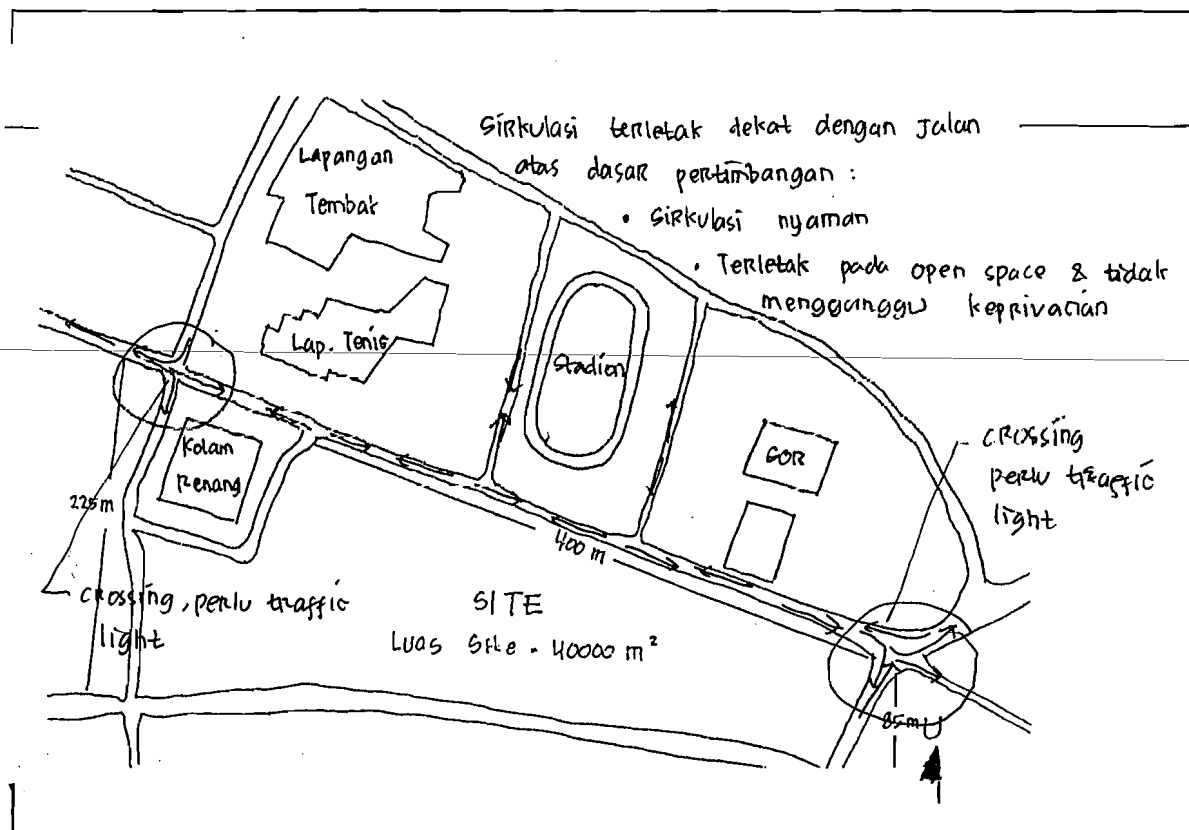 Sirkulasi terletak dekat dengan jalan
atas dasar pertimbangan :
• Sirkulasi nyaman
• Terletak pada open space & tidak
mengganggu keprivacian
Lapangan
Tembak
Lap. Tenis
Stadion
GOR
Kolam
Renang
crossing
perlu traffic
light
225 m
400 m
crossing, perlu traffic
light
SITE
Luas Site = 40000 m²
85 m
U